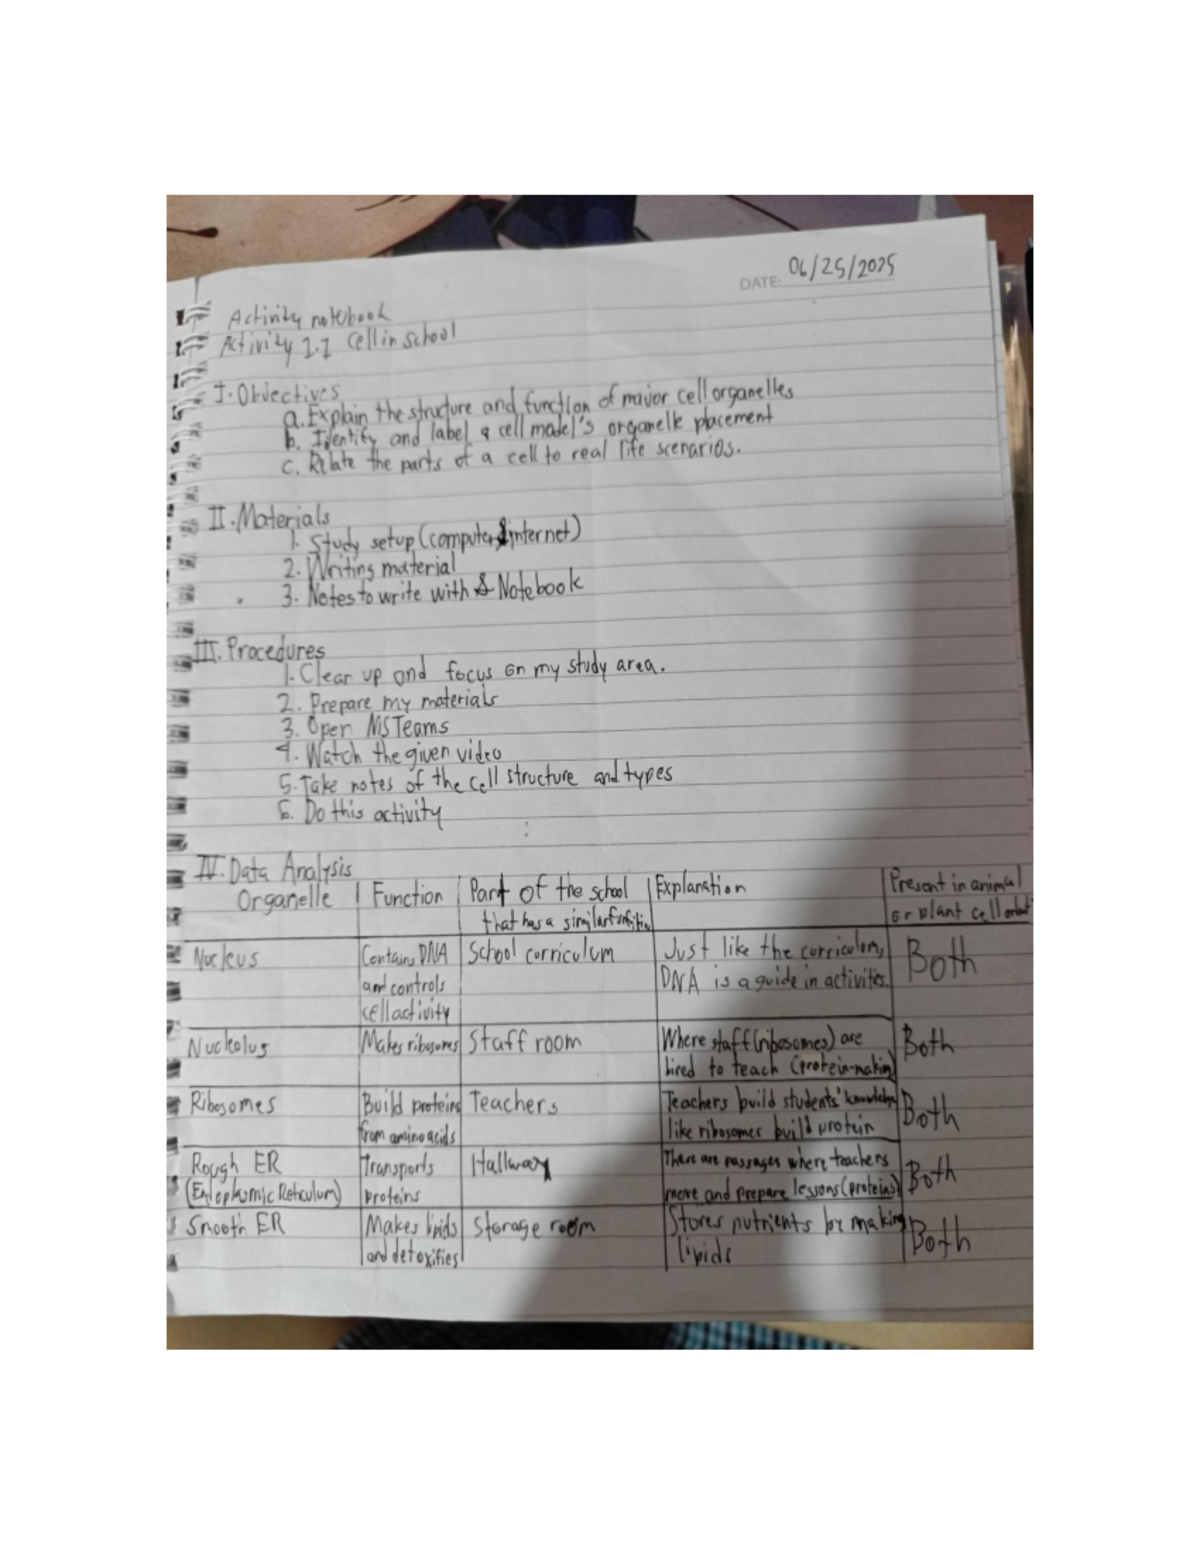 DATE: 06/25/2025
Activity notebook
Activity 1.1 Cell in school
I. Objectives
a. Explain the structure and function of major cell organelles
b. Identify and label a cell model's organelle placement
c. Relate the parts of a cell to real life scenarios.
II. Materials
1. Study setup (computer & internet)
2. Writing material
3. Notes to write with & Notebook
III. Procedures
1. Clean up and focus on my study area.
2. Prepare my materials
3. Open MS Teams
4. Watch the given video
5. Take notes of the cell structure and types
6. Do this activity
IV. Data Analysis
Organelle | Function | Part of the school that has a similar | Explanation | Present in animal or plant cell
Nucleus | Contains DNA and controls cell activity | School curriculum | Just like the curriculum, DNA is a guide in activities. | Both
Nucleolus | Makes ribosomes | Staff room | Where staff (ribosomes) are hired to teach (protein-making) | Both
Ribosomes | Build proteins from amino acids | Teachers | Teachers build students' knowledge like ribosomes build protein | Both
Rough ER (Endoplasmic Reticulum) | Transports proteins | Hallway | There are passages where teachers move and prepare lessons (proteins) | Both
Smooth ER | Makes lipids and detoxifies | Storage room | Stores nutrients by making lipids | Both